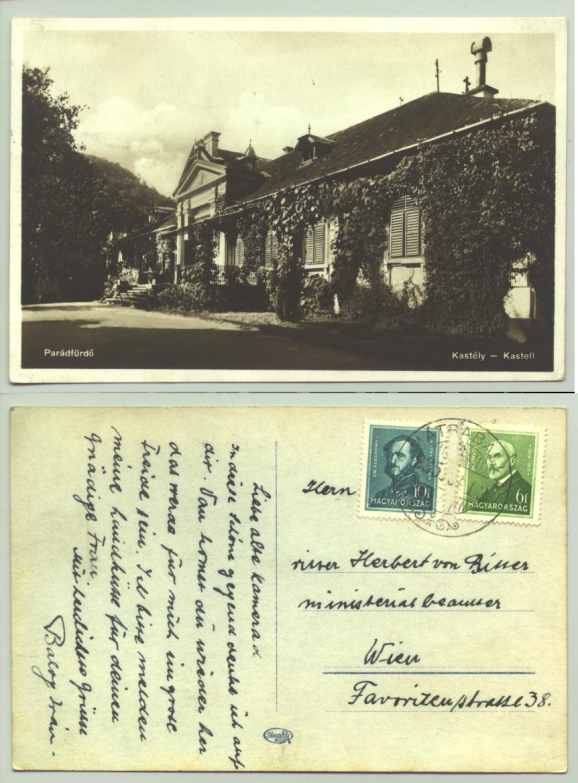 Parádfürdő
Kastély — Kastell
Liebe alte Kamerad
In diese schöne gegend denke ich auf
dir. Van komst du wieder her
das werae für mich ein grose
Freide sein. Ich bitte melden
meine handküss für deinen
Gnädige Frau,
Mit herzlichen Grüss
Balog Iván.
10f
MAGYARORSZÁG
6f
MAGYARORSZÁG
MÁTRA
Herrn
ritter Herbert von Ritter
ministerialbeamter
Wien
Favoritenstrasse 38.